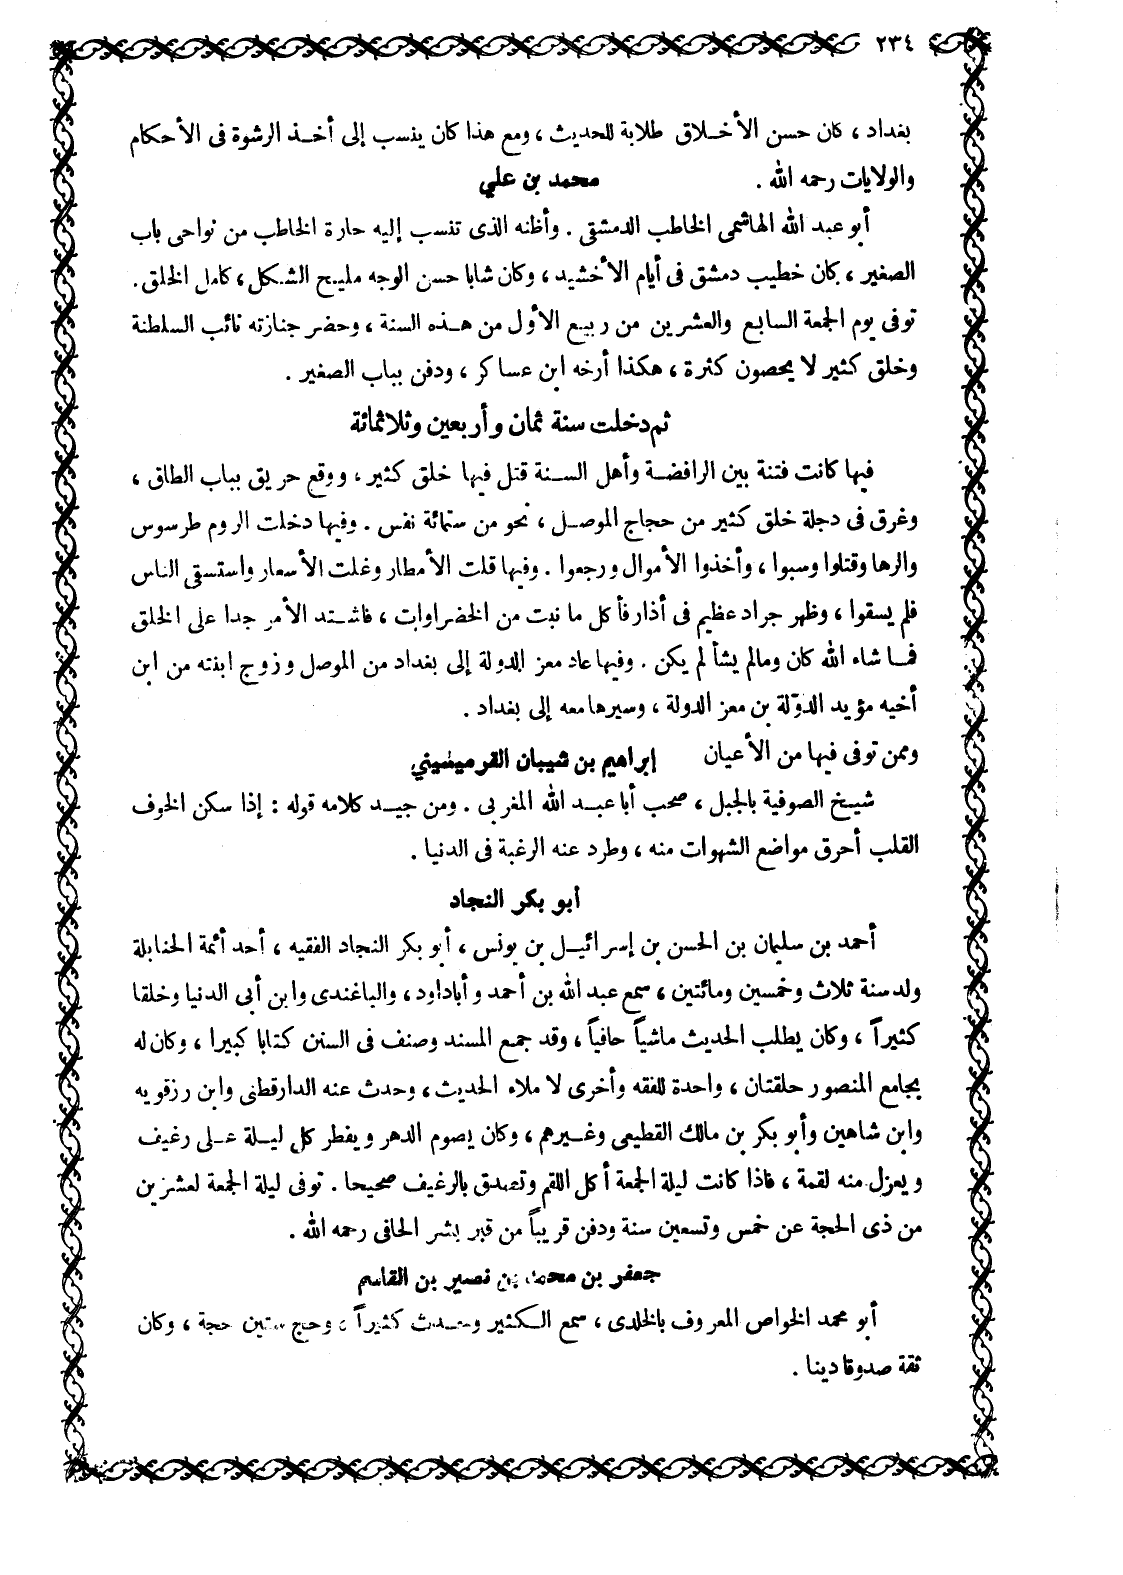 ٢٣٤
بغداد ، كان حسن الأخلاق طلابة للحديث ، ومع هذا كان ينسب إلى أخذ الرشوة فى الأحكام
والولايات رحمه الله . محمد بن علي
أبو عبد الله الهاشمى الخاطب الدمشقى . وأظنه الذى تنسب إليه حارة الخاطب من نواحى باب
الصغير ، كان خطيب دمشق فى أيام الأخشيد ، وكان شابا حسن الوجه مليح الشكل ، كامل الخلق .
توفى يوم الجمعة السابع والعشرين من ربيع الأول من هذه السنة ، وحضر جنازته نائب السلطنة
وخلق كثير لا يحصون كثرة ، هكذا أرخه ابن عساكر ، ودفن بباب الصغير .
ثم دخلت سنة ثمان وأربعين وثلاثمائة
فيها كانت فتنة بين الرافضة وأهل السنة قتل فيها خلق كثير ، ووقع حريق بباب الطاق ،
وغرق فى دجلة خلق كثير من حجاج الموصل ، نحو من ستمائة نفس . وفيها دخلت الروم طرسوس
والرها وقتلوا وسبوا ، وأخذوا الأموال ورجعوا . وفيها قلت الأمطار وغلت الأسعار واستسقى الناس
فلم يسقوا ، وظهر جراد عظيم فى أذار فأكل ما نبت من الخضراوات ، فاشتد الأمر جدا على الخلق
فما شاء الله كان ومالم يشأ لم يكن . وفيها عاد معز الدولة إلى بغداد من الموصل وزوج ابنته من ابن
أخيه مؤيد الدولة بن معز الدولة ، وسيرها معه إلى بغداد .
وممن توفى فيها من الأعيان إبراهيم بن شيبان القرميسيني
شيخ الصوفية بالجبل ، صحب أبا عبد الله المغربى . ومن جيد كلامه قوله : إذا سكن الخوف
القلب أحرق مواضع الشهوات منه ، وطرد عنه الرغبة فى الدنيا .
أبو بكر النجاد
أحمد بن سليمان بن الحسن بن إسرائيل بن يونس ، أبو بكر النجاد الفقيه ، أحد أئمة الحنابلة
ولد سنة ثلاث وخمسين ومائتين ، سمع عبد الله بن أحمد وأباداود ، والباغندى وابن أبى الدنيا وخلقا
كثيراً ، وكان يطلب الحديث ماشياً حافياً ، وقد جمع المسند وصنف فى السنن كتابا كبيرا ، وكان له
بجامع المنصور حلقتان ، واحدة للفقه وأخرى لاملاء الحديث ، وحدث عنه الدارقطنى وابن رزقويه
وابن شاهين وأبو بكر بن مالك القطيعى وغيرهم ، وكان يصوم الدهر ويفطر كل ليلة على رغيف
ويعزل منه لقمة ، فاذا كانت ليلة الجمعة أكل اللقم وتصدق بالرغيف صحيحا . توفى ليلة الجمعة لعشرين
من ذى الحجة عن خمس وتسعين سنة ودفن قريباً من قبر بشر الحافى رحمه الله .
جعفر بن محمد بن نصير بن القاسم
أبو محمد الخواص المعروف بالخلدى ، سمع الكثير وحدث كثيراً ، وحج ستين حجة ، وكان
ثقة صدوقا دينا .